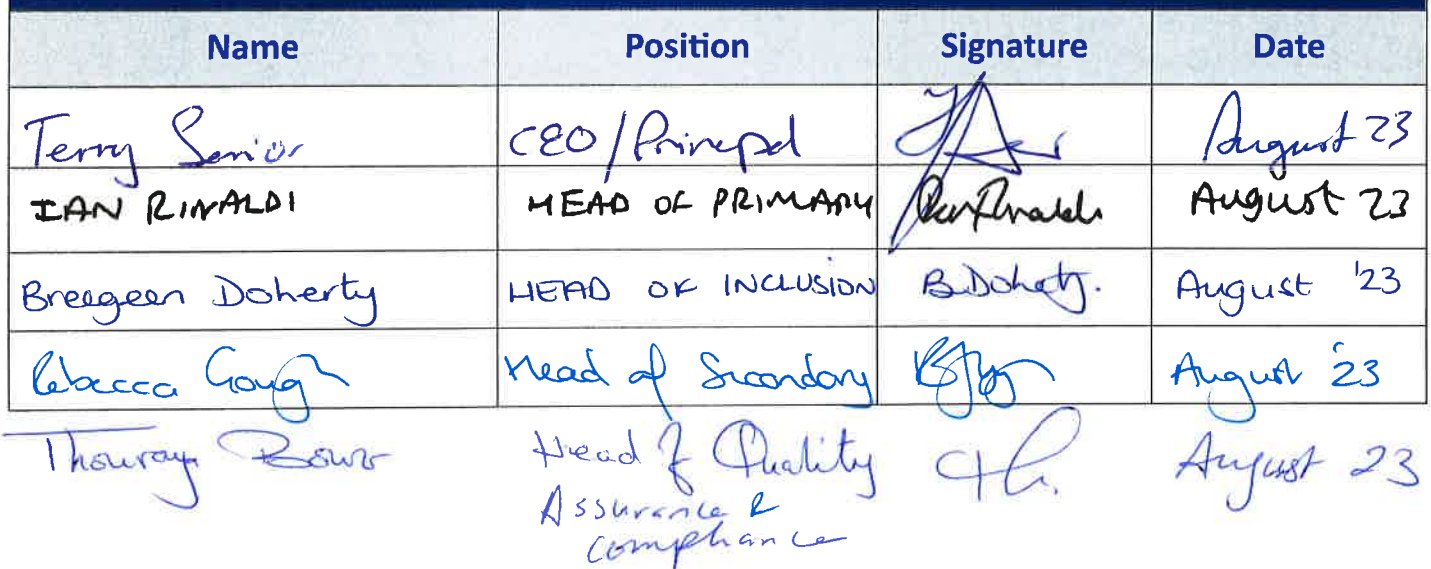 Name Position Signature Date
Terry Senior CEO/Principal August 23
IAN RINALDI HEAD OF PRIMARY Ian Rinaldi August 23
Breegeen Doherty HEAD OF INCLUSION B.Doherty. August '23
Rebecca Gough Head of Secondary August '23
Thouraya Head of Quality August 23
Assurance &
Compliance